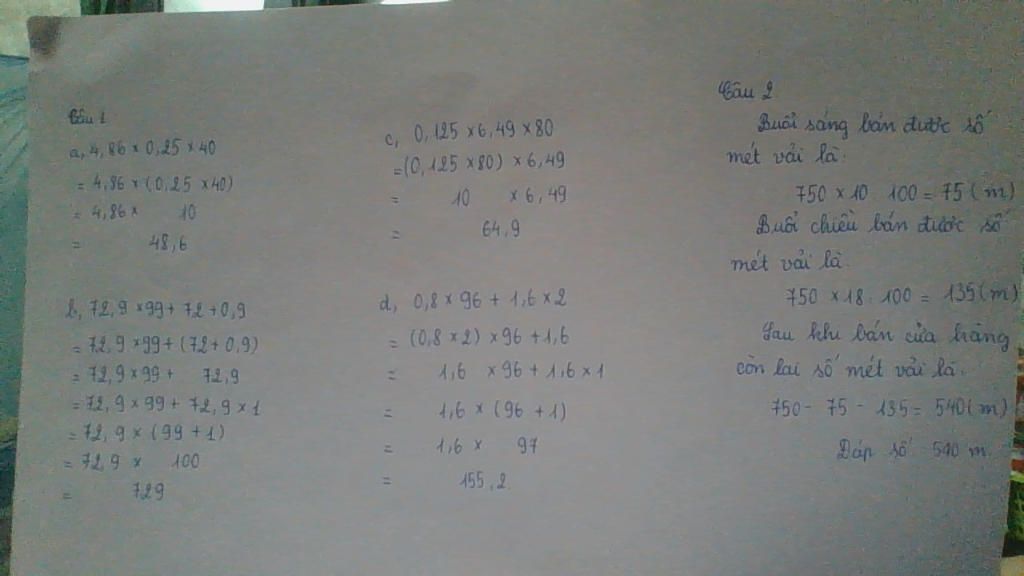 Câu 1
a, 4,86 × 0,25 × 40
= 4,86 × (0,25 × 40)
= 4,86 × 10
= 48,6
b, 72,9 × 99 + 72 + 0,9
= 72,9 × 99 + (72 + 0,9)
= 72,9 × 99 + 72,9
= 72,9 × 99 + 72,9 × 1
= 72,9 × (99 + 1)
= 72,9 × 100
= 729
c, 0,125 × 6,49 × 80
= (0,125 × 80) × 6,49
= 10 × 6,49
= 64,9
d, 0,8 × 96 + 1,6 × 2
= (0,8 × 2) × 96 + 1,6
= 1,6 × 96 + 1,6 × 1
= 1,6 × (96 + 1)
= 1,6 × 97
= 155,2
Câu 2
Buổi sáng bán được số
mét vải là:
750 × 10 : 100 = 75 (m)
Buổi chiều bán được số
mét vải là:
750 × 18 : 100 = 135 (m)
Sau khi bán cửa hàng
còn lại số mét vải là:
750 - 75 - 135 = 540 (m)
Đáp số: 540 m.